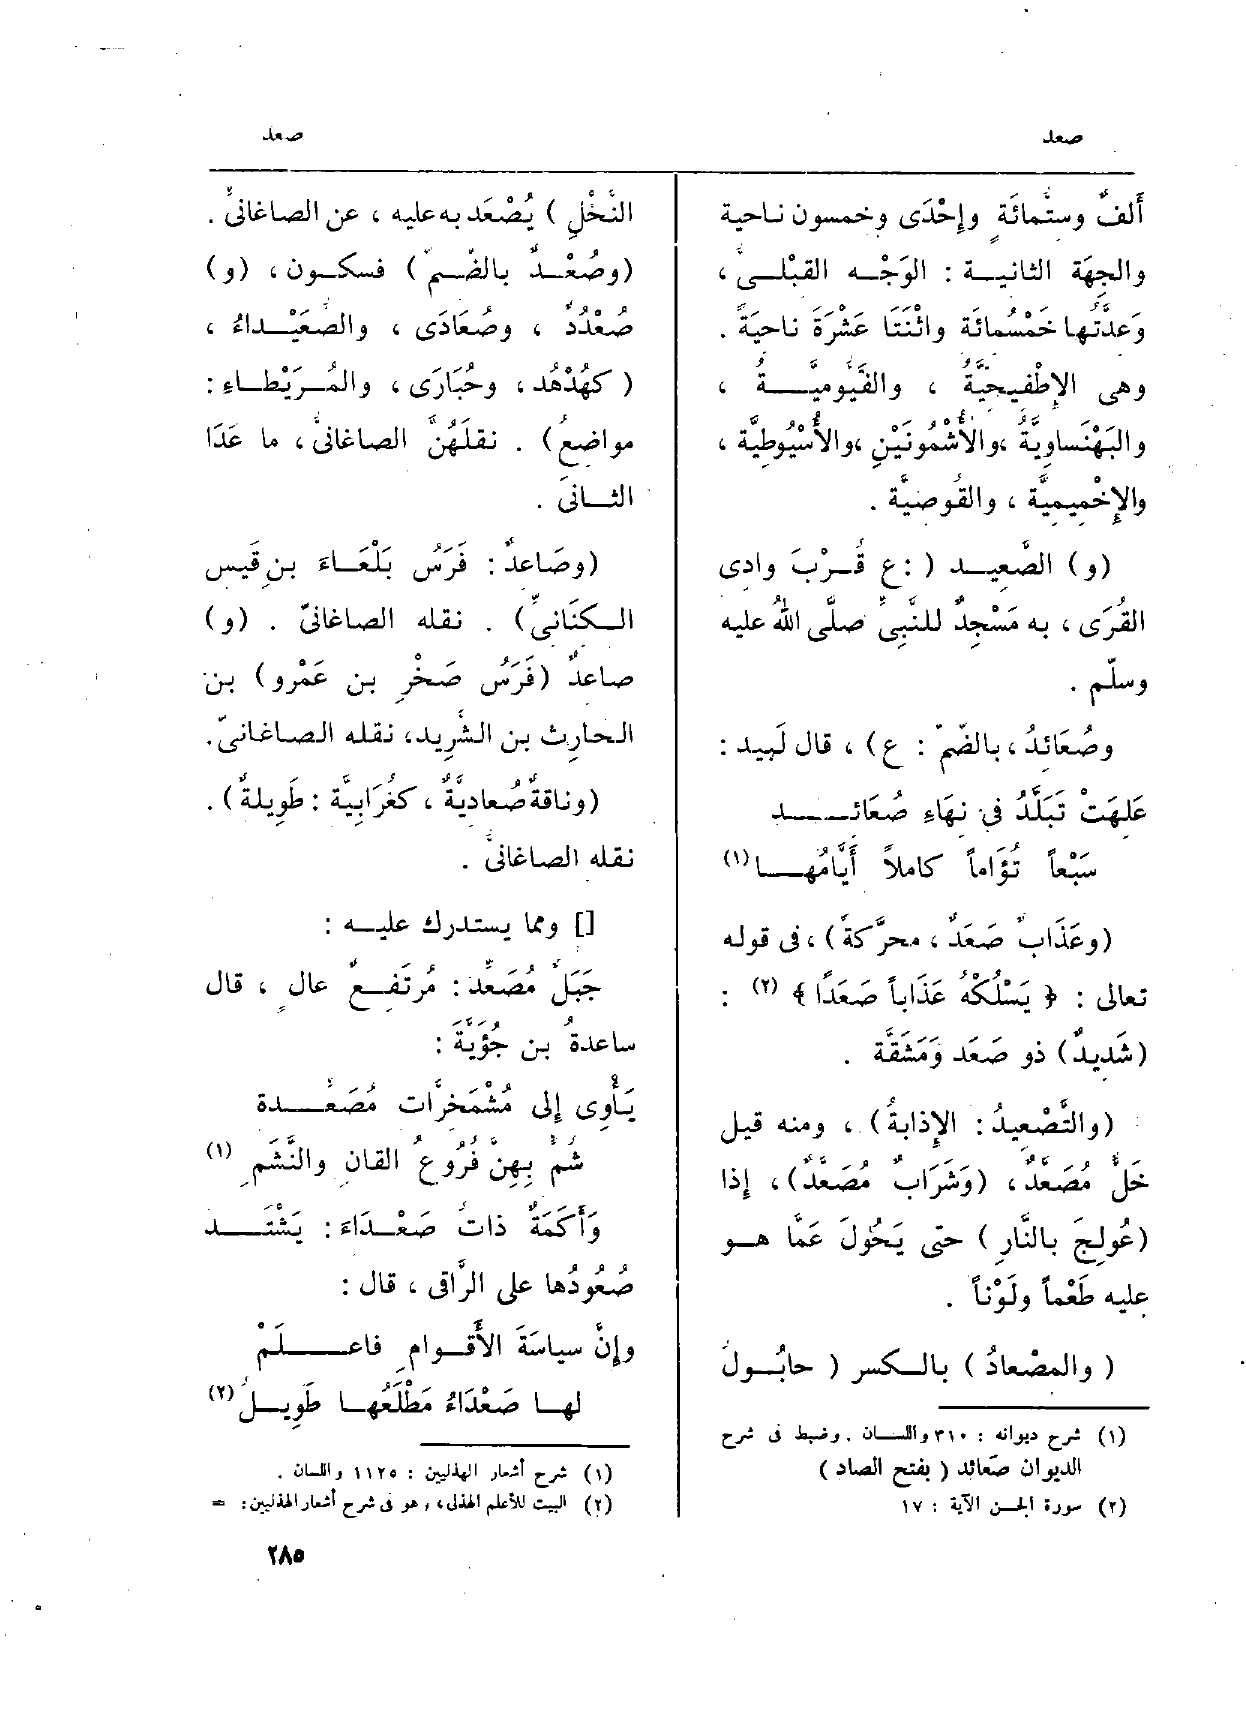 صعد
صعد
أَلفٌ وستُّمائَةٍ وإِحْدَى وخمسون ناحية
والجِهَة الثانيــة : الوَجْــه القِبْلــىّ ،
وَعِدَّتُها خَمْسُمائة واثْنَتَا عَشْرَةَ ناحيَةً .
وهى الإِطْفِيحِيَّةُ ، والفَيُّوميَّــــةُ ،
والبَهْنَساوِيَّةُ ،والأُشْمُونَيْنِ ،والأُسْيُوطِيَّة ،
والإِخْمِيمِيَّة ، والقُوصِيَّة .
(و) الصَّعِيــد ( :ع قُــرْبَ وادى
القُرَى ، به مَسْجِدٌ للنَّبِىِّ صلَّى اللهُ عليه
وسلّم .
وصُعَائِدُ ، بالضّمّ : ع) ، قال لَبِيد :
عَلِهَتْ تَبَلَّدُ فى نِهَاءِ صُعَائــــد
سَبْعاً تُؤَاماً كاملاً أَيّامُهــا (١)
(وعَذَابٌ صَعَدٌ ، محرَّكةً) ، فى قوله
تعالى : ﴿ يَسْلُكْهُ عَذَاباً صَعَدًا ﴾ (٢) :
(شَدِيدٌ) ذو صَعَد وَمَشَقَّة .
(والتَّصْعِيدُ : الإِذابةُ) ، ومنه قيل
خَلٌّ مُصَعَّدٌ ، (وَشَرَابٌ مُصَعَّدٌ) ، إِذا
(عُولِجَ بالنَّارِ ) حتى يَحُولَ عَمَّا هــو
عليه طَعْماً ولَوْناً .
( والمِصْعادُ ) بالــكسر ( حابُــولُ
(١) شرح ديوانه : ٣١٠ واللــسان . وضبط فى شرح
الديوان صَعائد ( بفتح الصاد )
(٢) سورة الجــن الآية : ١٧
النَّخْلِ ) يُصْعَد به عليه ، عن الصاغانىّ .
(وصُعْــدٌ بالضّــمّ ) فسكــون ، (و)
صُعْدُدٌ ، وصُعَادَى ، والصُّعَيْــداءُ ،
( كهُدْهُد ، وحُبَارَى ، والمُــرَيْطــاءِ :
مواضِعُ) . نقلَهُنَّ الصاغانىّ ، ما عَدَا
الثــانىَ .
(وصَاعِدٌ : فَرَسُ بَلْعَــاءَ بن قَيس
الــكنَانىّ) . نقله الصاغانىّ . (و)
صاعدٌ (فَرَسُ صَخْرِ بن عَمْرو) بن
الحارِث بن الشَّرِيد ، نقله الصاغانىّ .
(وناقةٌ صُعاديةٌ ، كغُرَابِيَّة : طَوِيلةٌ) .
نقله الصاغانىّ .
[] ومما يستدرك عليــه :
جَبَلٌ مُصَعِّد : مُرتَفِــعٌ عالٍ ، قال
ساعدةُ بن جُؤَيَّةَ :
يَأْوِى إلى مُشْمَخرَّات مُصَعِّــدة
شُمٍّ بِهِنَّ فُرُوعُ القَانِ والنَّشَمِ (١)
وَأَكَمَةٌ ذاتُ صَعْــدَاءَ : يَشْتَــــد
صُعُودُها على الرَّاقى ، قال :
وإِنَّ سياسَةَ الأَقْــوامِ فاعــــلَمْ
لهــا صَعْدَاءُ مَطْلَعُهــا طَوِيــلُ (٢)
(١) شرح أشعار الهذليين : ١١٢٥ واللسان .
(٢) البيت للأعلم الهذلى ، وهو فى شرح أشعار الهذليين : =
٢٨٥